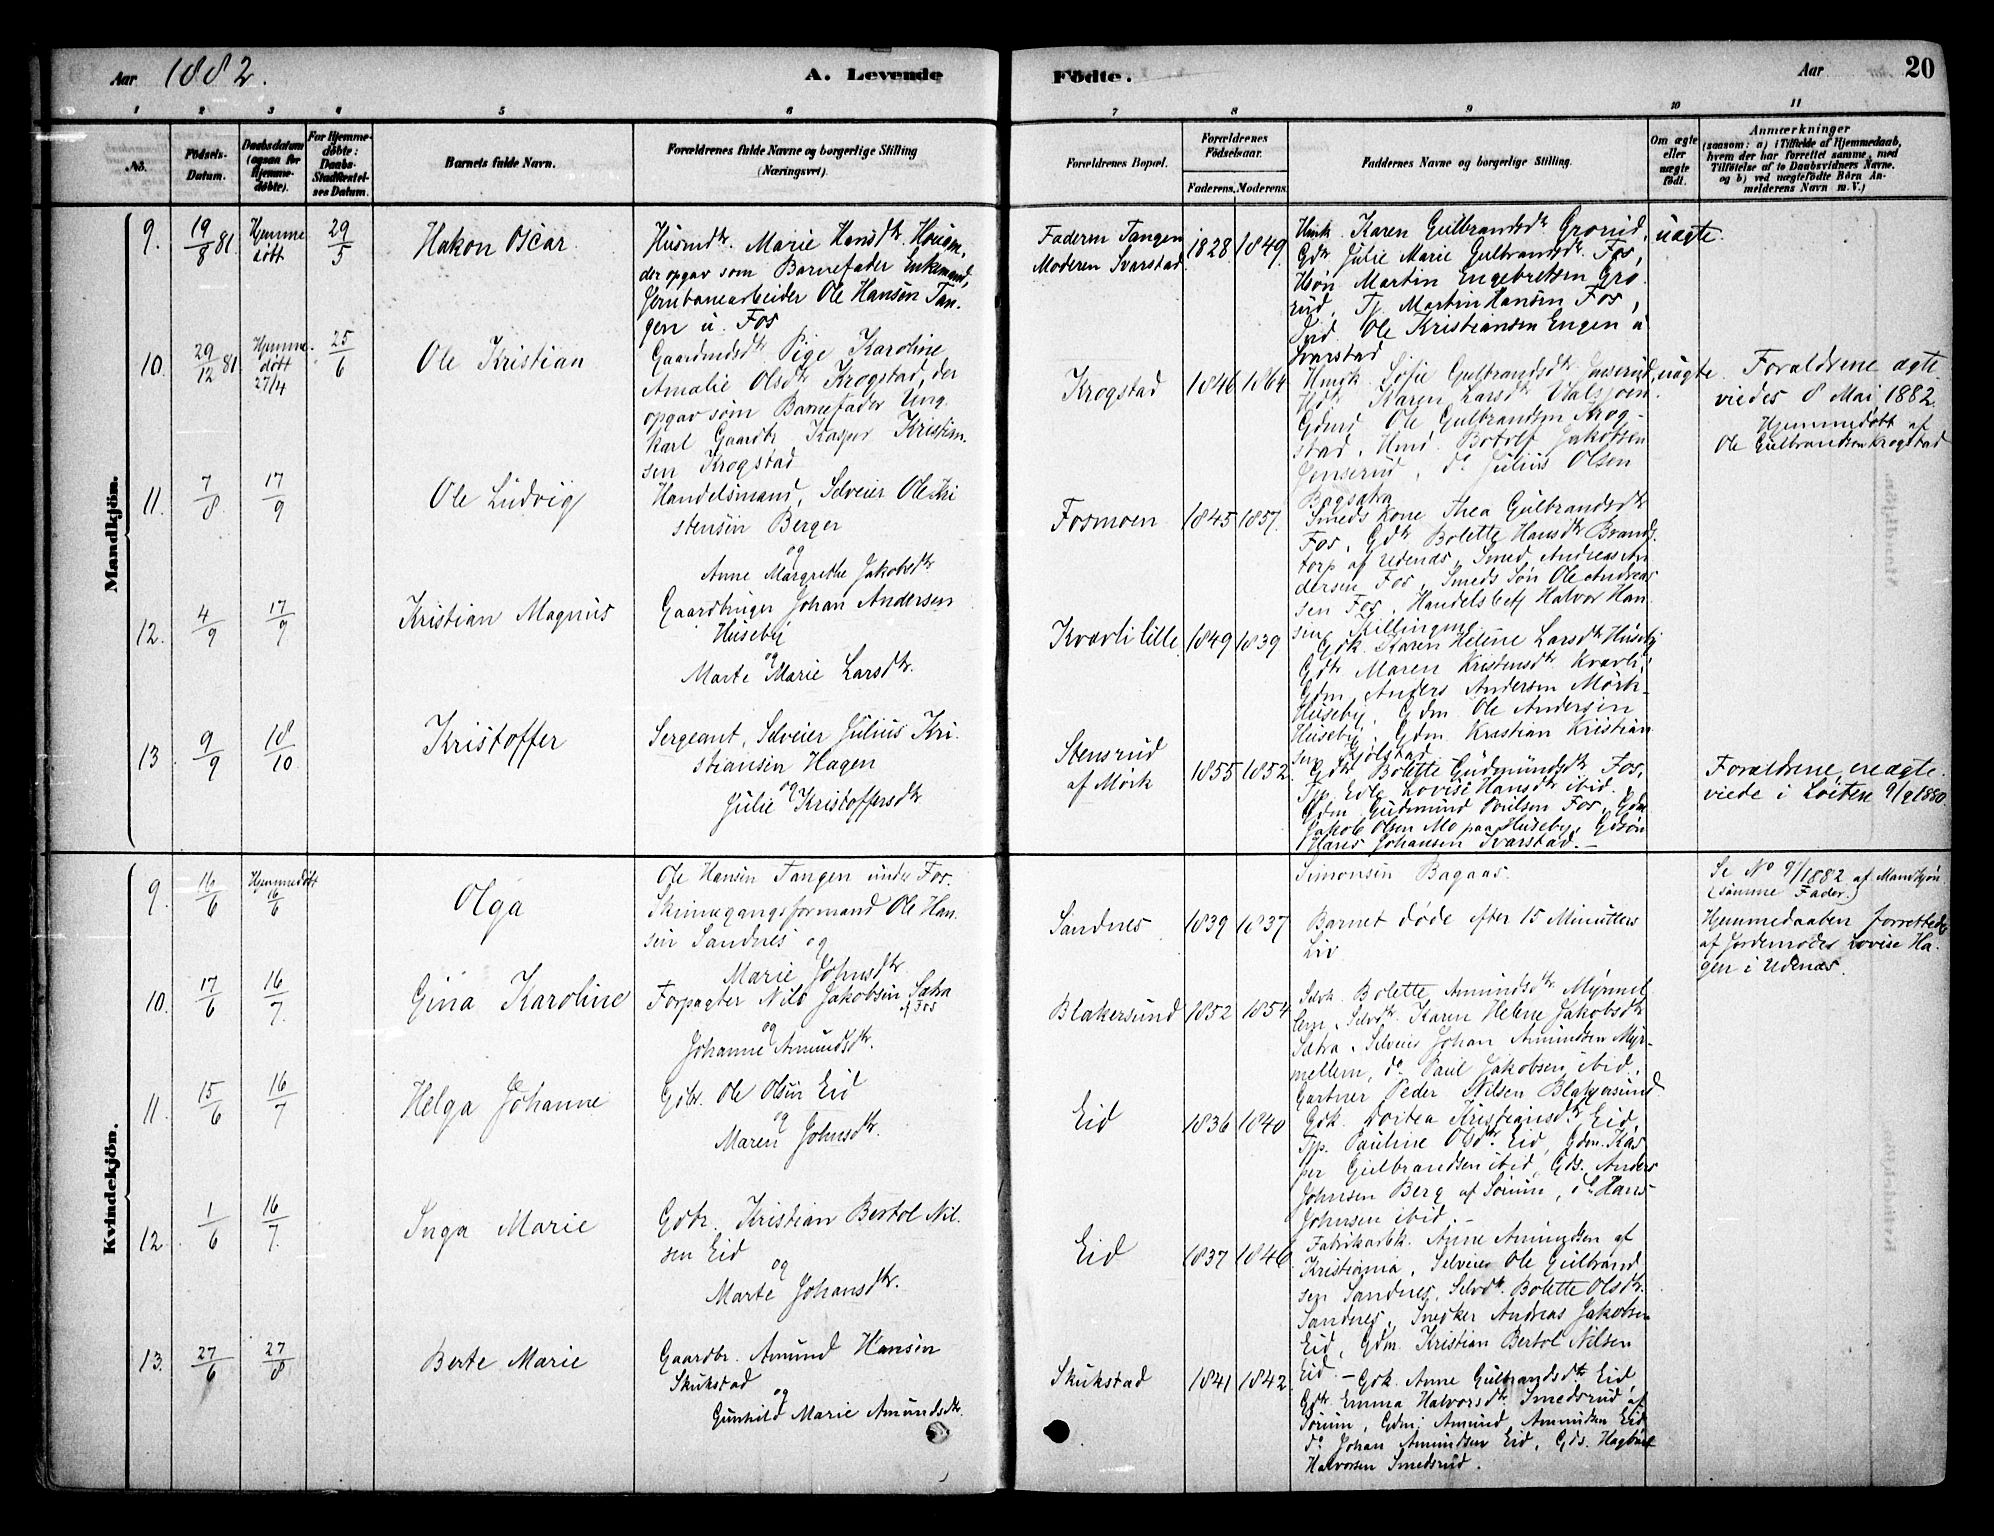 Aar 1882.
A. Levende
Födte.
Aar
20
1 2 3 4 5 6 7 8 9 10 11
No.
Födsels-Datum.
Daabsdatum (ogsaa for Hjemmedöbte).
For Hjemmedöbte: Daabs-Stadfæstelses Datum.
Barnets fulde Navn.
Forældrenes fulde Navne og borgerlige Stilling (Næringsvei).
Forældrenes Bopæl.
Forældrenes Födselsaar.
Faderens. Moderens.
Faddernes Navne og borgerlige Stilling.
Om ægte eller uægte födt.
Anmærkninger
(saasom: a) i Tilfælde af Hjemmedaab, hvem der har forrettet samme, med Tilföielse af to Daabsvidners Navne. og b) ved uægtefödte Börn Anmelderens Navn m. V.)
Mandkjön.
9. 19/8 81 Hjemmedöbt 29/5
Hakon Oscar
Husmdtr. Marie Hansdtr. Hougen,
der opgav som Barnefader Enkemand,
Jernbanearbeider Ole Hansen Tan-
gen u. Fos
Faderen Tangen
Moderen Svarstad
1828 1849
Hmk. Karen Gulbrandsdtr Grorud,
Gdtr Julie Marie Gulbrandsdtr. Fos,
Hsön Martin Engebretsen Gro
rud, Tj. Martin Hansen Fos,
Ole Kristiansen Engen u
Svarstad
uægte.
10. 29/12 81 Hjemmedöbt 27/4 25/6
Ole Kristian
Gaardmdsdtr Pige Karoline
Amalie Olsdtr Krogstad, der
opgav som Barnefader Ung
karl Gaardbr Kasper Kristian-
sen Krogstad
Krogstad
1846 1864
Hmk. Sofie Gulbrandsdtr Jenserud,
Hdtr Karen Larsdtr Valsjöen.
Gdmd Ole Gulbrandsen Krog-
stad, Hmd. Botolf Jakobsen
Jenserud, do Julius Olsen
Bogsætra
uægte
Forældrene ægte-
viedes 8 Mai 1882
Hjemmedöbt af
Ole Gulbrandsen Krogstad
11. 7/8 17/9
Ole Ludvig
Handelsmand, Selveier Ole Kri
stensen Berger
og
Anne Margrethe Jakobsdtr
Fosmoen
1845 1857.
Smeds Kone Thea Gulbrandsdtr
Fos, Gdtr Bolette Hansdtr Brands
torp af Udenæs, Smed Andreas An
dersen Fos, Smeds Sön Ole Andreas
sen Fos, Handelsbetj Halvor Han
sen Killingmo
12. 4/9 17/9
Kristian Magnus
Gaardbruger Johan Andersen
Huseby
og
Marte Marie Larsdtr.
Kvævli lille
1849 1839
Gdk. Karen Helene Larsdtr Huseby
Gdtr Maren Kristensdtr Kvævli,
Gdm. Anders Andersen Mörk-
Huseby, Gdm Ole Andersen
Huseby, Gdm Kristian Kristian
sen Kjölstad
13 9/9 18/10
Kristoffer
Sergeant, Selveier Julius Kri-
stiansen Hagen
og
Julie Kristoffersdtr
Stensrud
af Mörk
1855 1852
Gdtr Bolette Gudmundsdtr Fos,
Tjp. Edle Lovise Hansdtr ibid.,
Gdm Gudmund Poulsen Fos, Gdm
Jakob Olsen Mo paa Huseby, Gdsön
Hans Johansen Svarstad.—
Forældrene ere ægte-
viede i Löiten 9/9 1880
Kvindekjön.
9. 16/6 Hjemmedöbt 16/6
Olga
Ole Hansen Tangen under Fos.
Skinnegangsformand Ole Han-
sen Sandnes og
Marie Johnsdtr
Sandnes
1839 1837
Simonsen Bagaas.
Barnet döde efter 15 Minutters
Liv
Se No 9/1882 af Mandkjön
(samme Fader.)
Hjemmedaaben forrettedes
af Jordemoder Lovise Ha-
gen i Udenæs.
10. 17/6 16/7.
Gina Karoline
Forpagter Nils Jakobsen Sætra
af Fos
og
Johanne Amundsdtr.
Blakersund
1852 1854
Selvk. Bolette Amundsdtr Myrmel
lem, Selvdtr Karen Helene Jakobsdtr
Sætra, Selveier Johan Amundsen Myr-
mellem, do Paul Jakobsen ibid.,
Gartner Peder Nilsen Blakersund
11. 15/6 16/7
Helga Johanne
Gdbr. Ole Olsen Eid
og
Maren Johnsdtr.
Eid
1836 1840
Gdk. Dortea Kristiansdtr Eid,
Tjp. Pauline Olsdtr Eid, Gdm. Kas
per Gulbrandsen ibid, Gds. Anders
Johnsen Berg af Sörum, do Hans
Johnsen ibid.—
12. 1/6 16/7.
Inga Marie
Gdbr. Kristian Bertol Nil-
sen Eid
og
Marte Johansdtr.
Eid
1837 1846
Fabrikarbk. Anne Amundsen af
Kristiania, Selveier Ole Gulbrand
sen Sandnes, Selvdtr. Bolette Olsdtr.
Sandnes, Snedker Andreas Jakobsen
Eid, Gdm. Kristian Bertol Nilsen
Eid.—
13. 27/6 27/8
Berte Marie
Gaardbr. Amund Hansen
Skukstad
og
Gunhild Marie Amundsdtr.
Skukstad
1841 1842.
Gdk. Anne Gulbrandsdtr Eid,
Gdtr Emma Halvorsdtr Smedsrud af
Sörum, Gdm. Amund Amundsen Eid
do Johan Amundsen Eid, Gds. Hagbart
Halvorsen Smedsrud.